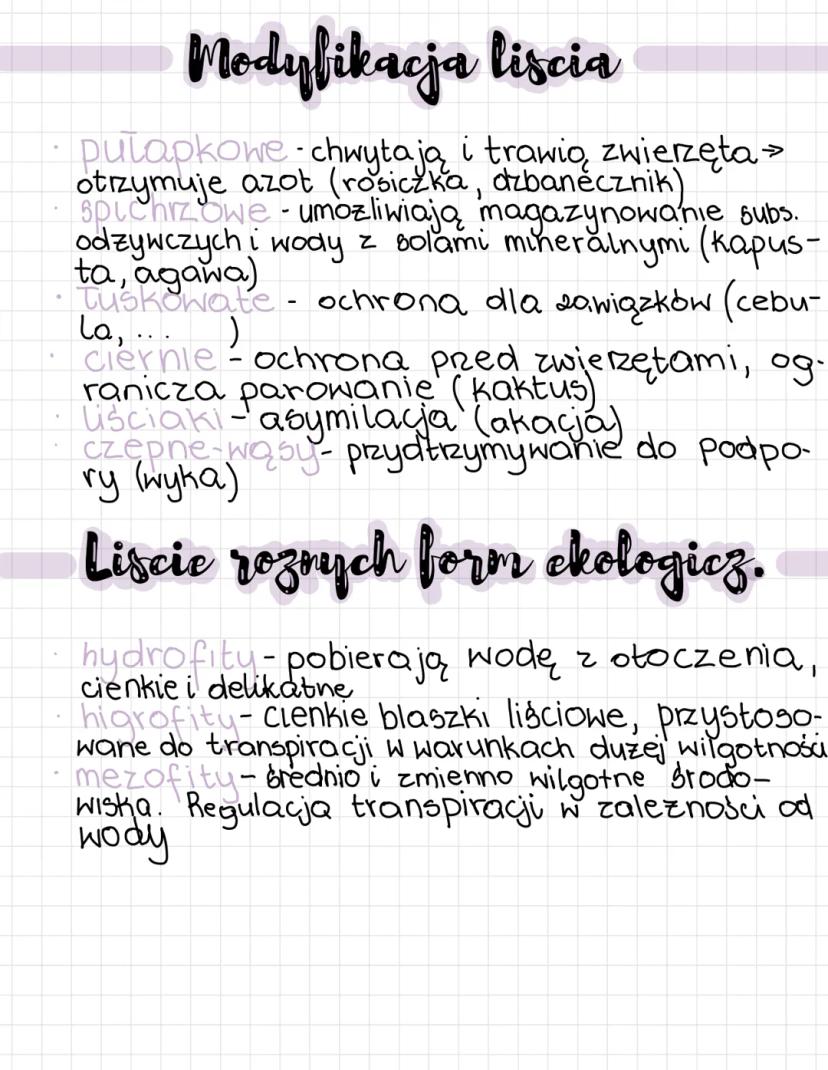 Modyfikacja liscia
· pułapkowe - chwytają i trawią zwierzęta →
otrzymuje azot (rosiczka, dzbanecznik)
· spichrzowe - umożliwiają magazynowanie subs.
odżywczych i wody z solami mineralnymi (kapus-
ta, agawa)
· łuskowate - ochrona dla zawiązków (cebu-
la, ... )
· ciernie - ochrona przed zwierzętami, og-
ranicza parowanie (kaktus)
· liściaki - asymilacja (akacja)
· czepne-wąsy - przydtrzymywanie do podpo-
ry (wyka)
Liscie roznych form ekologicz.
· hydrofity - pobierają wodę z otoczenia,
cienkie i delikatne
· higrofity - cienkie blaszki liściowe, przystoso-
wane do transpiracji w warunkach dużej wilgotności
· mezofity - średnio i zmienno wilgotne środo-
wiska. Regulacja transpiracji w zależności od
wody